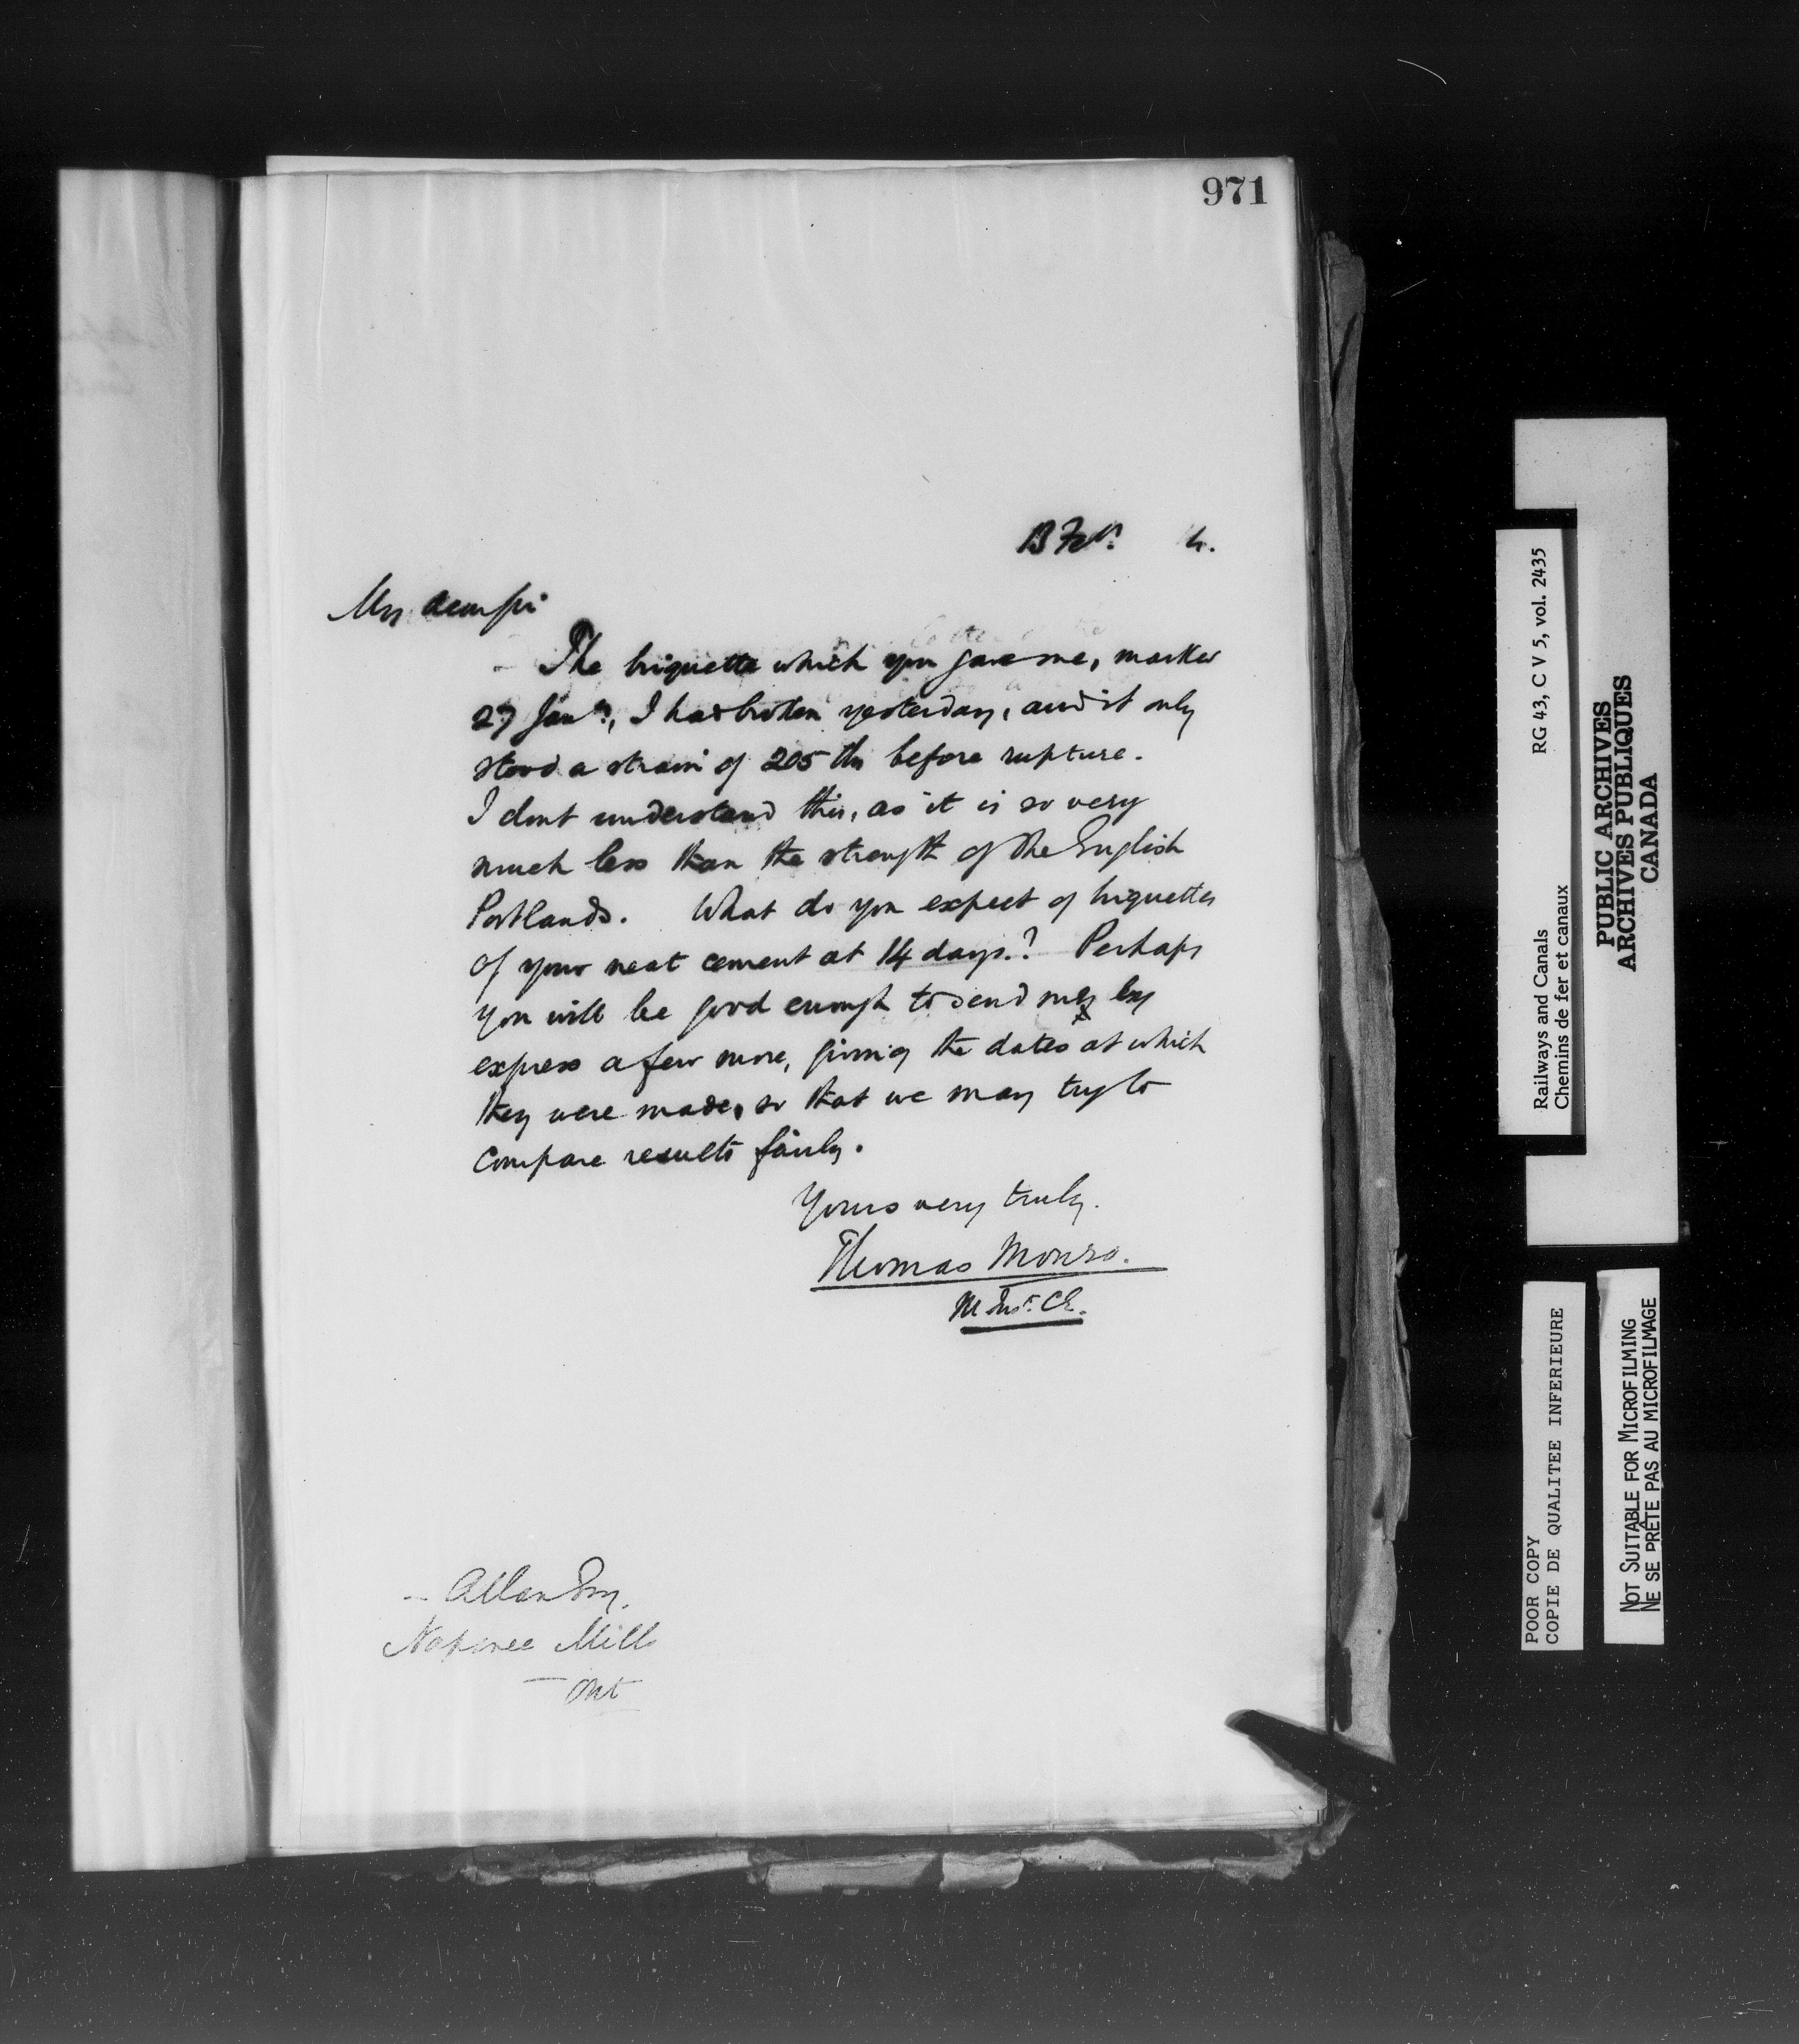 971
13 Feb. 4.
My dear sir
The briquette which you gave me, marked
27 Jany., I had broken yesterday, and it only
stood a strain of 205 lbs before rupture.
I dont understand this, as it is so very
much less than the strength of the English
Portlands. What do you expect of briquettes
of your neat cement at 14 days? Perhaps
you will be good enough to send me by
express a few more, giving the dates at which
they were made, so that we may try to
compare results fairly.
Yours very truly.
Thomas Monro.
M Inst. CE.
Allan Esq.
Napanee Mills
Ont
RG 43, C V 5, vol. 2435
Railways and Canals
Chemins de fer et canaux
PUBLIC ARCHIVES
ARCHIVES PUBLIQUES
CANADA
POOR COPY
COPIE DE QUALITEE INFERIEURE
NOT SUITABLE FOR MICROFILMING
NE SE PRÊTE PAS AU MICROFILMAGE